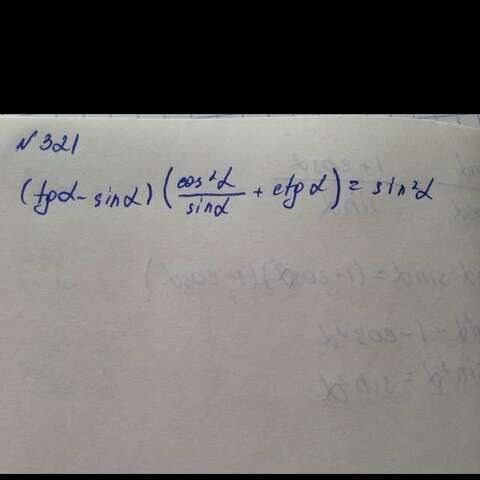 № 321
(tgα - sinα) (cos²α/sinα + ctgα) = sin²α